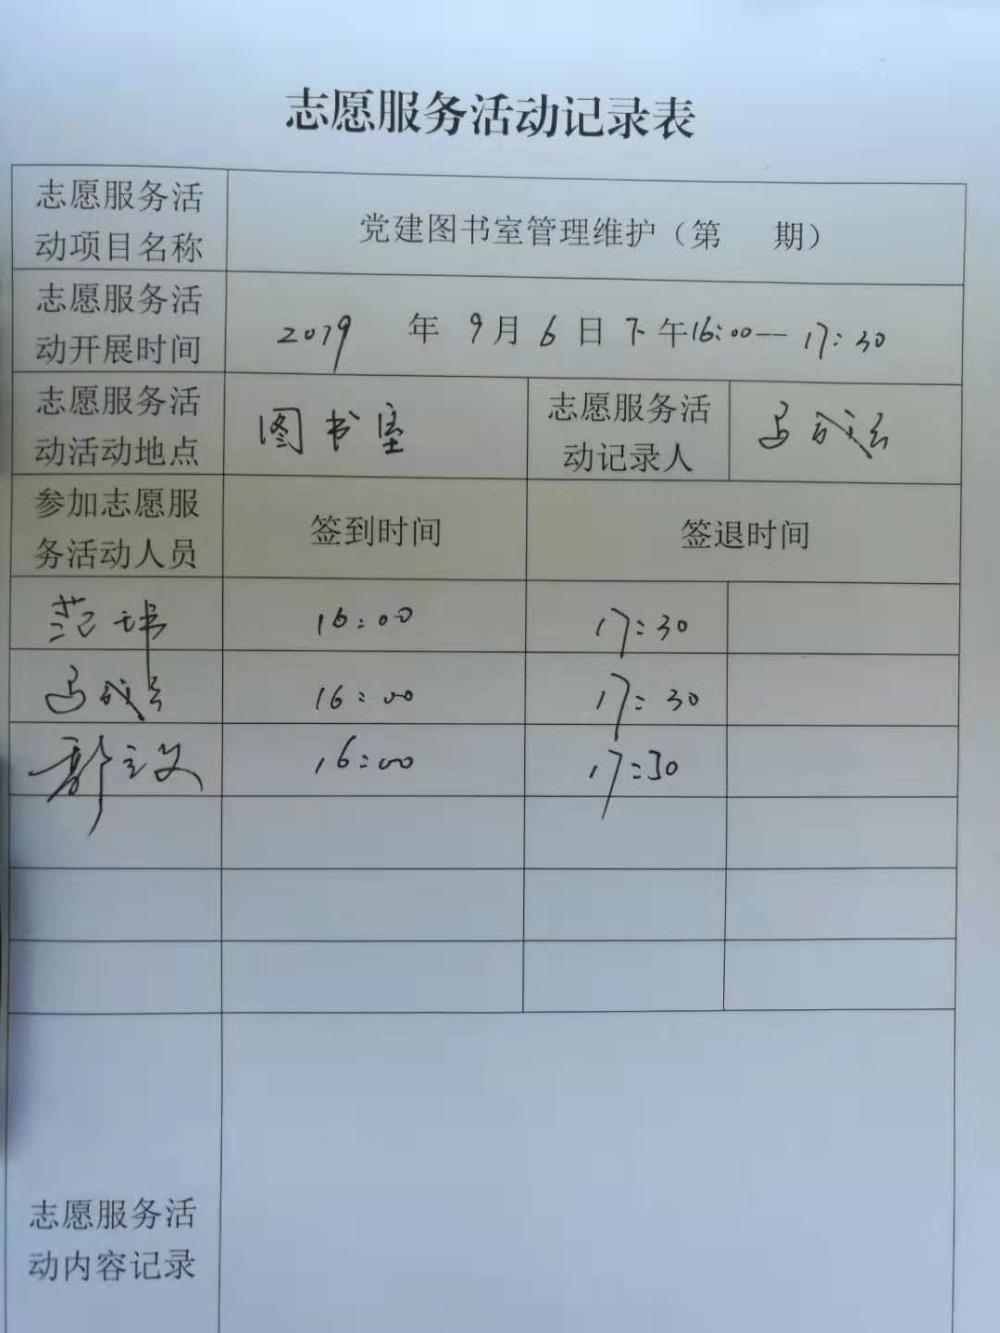 志愿服务活动记录表
志愿服务活
动项目名称
党建图书室管理维护（第 期）
志愿服务活
动开展时间
2019 年 9月 6 日 下午16:00— 17:30
志愿服务活
动活动地点
图书室
志愿服务活
动记录人
马成云
参加志愿服
务活动人员
签到时间
签退时间
范 16:00 17:30
马成云 16:00 17:30
郭文 16:00 17:30
志愿服务活
动内容记录